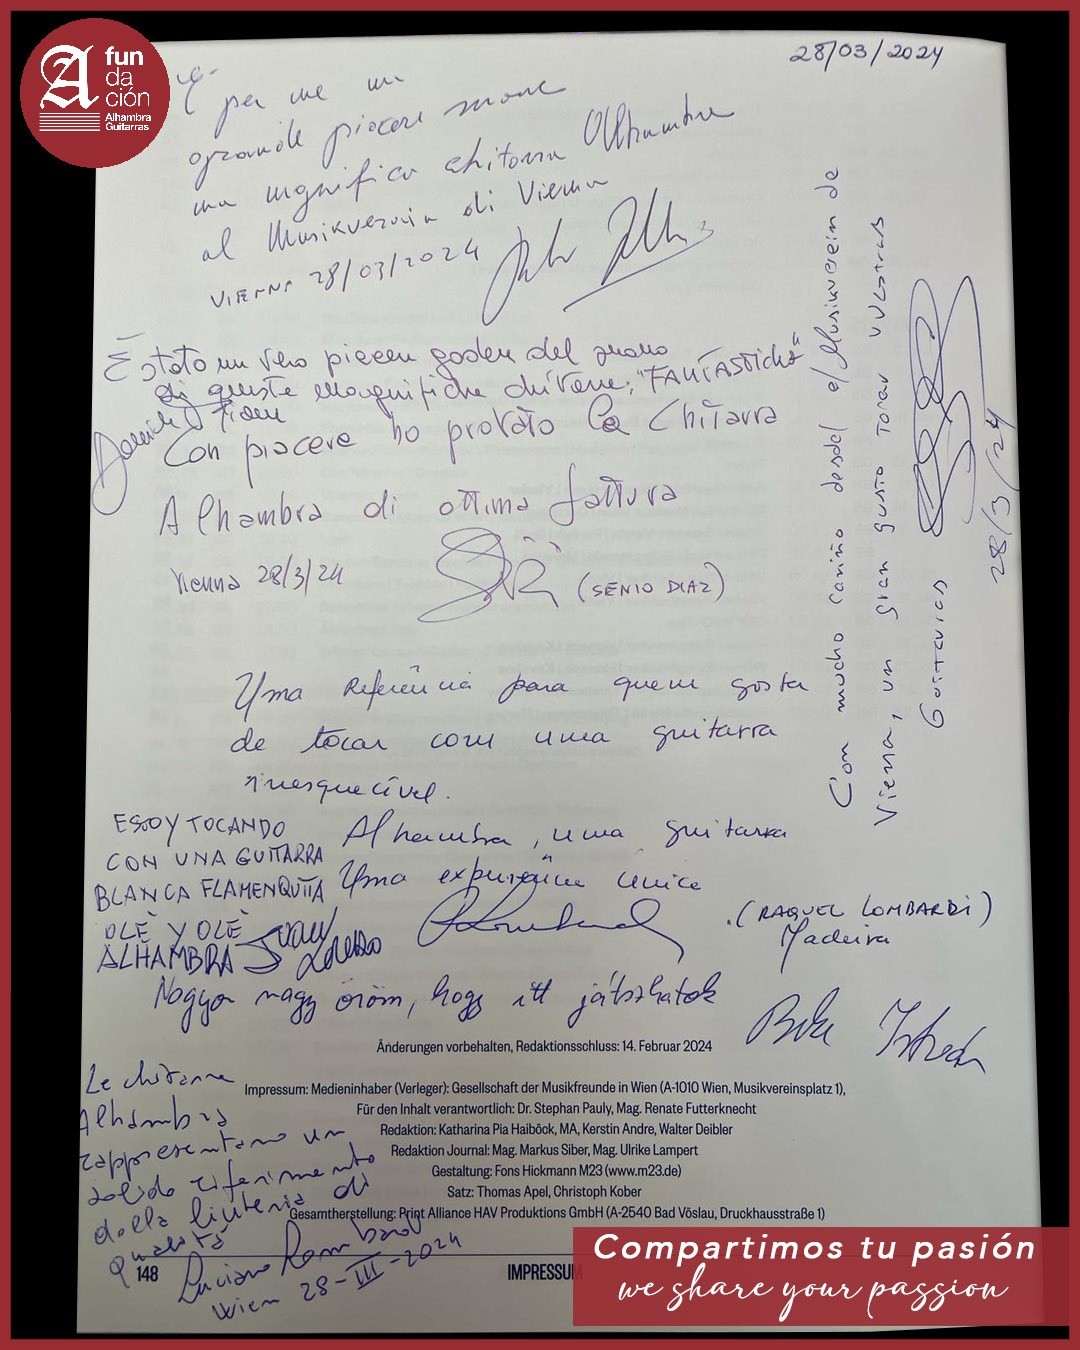 A fun
da
ción
Alhambra
Guitarras
28/03/2024
E' per me un
grande piacere suonare
una magnifica chitarra Alhambra
al Musikverein di Vienna
VIENNA 28/03/2024
È stato un vero piacere godere del suono
di queste magnifiche chitarre, "FANTASTICHE"
Con piacere ho provato la Chitarra
Alhambra di ottima fattura
Vienna 28/3/24
(SENIO DIAZ)
Con mucho cariño desde el Musikverein de
Viena, un gran gusto tocar vuestras
Guitarras
28/3/24
Uma Referência para quem gosta
de tocar com uma guitarra
inesquecível.
Alhambra, uma guitarra
Uma experiência única
(RAQUEL LOMBARDI)
Madeira
ESTOY TOCANDO
CON UNA GUITARRA
BLANCA FLAMENQUITA
OLÈ Y OLÈ
ALHAMBRA Juan
Lorenzo
Nagyon nagy öröm, hogy itt játszhatok
Änderungen vorbehalten, Redaktionsschluss: 14. Februar 2024
Impressum: Medieninhaber (Verleger): Gesellschaft der Musikfreunde in Wien (A-1010 Wien, Musikvereinsplatz 1),
Für den Inhalt verantwortlich: Dr. Stephan Pauly, Mag. Renate Futterknecht
Redaktion: Katharina Pia Haiböck, MA, Kerstin Andre, Walter Deibler
Redaktion Journal: Mag. Markus Siber, Mag. Ulrike Lampert
Gestaltung: Fons Hickmann M23 (www.m23.de)
Satz: Thomas Apel, Christoph Kober
Gesamtherstellung: Print Alliance HAV Produktions GmbH (A-2540 Bad Vöslau, Druckhausstraße 1)
Le chitarre
Alhambra
rappresentano un
solido riferimento
della liuteria di
qualità
Luciano Lombardi
Wien 28-III-2024
148
IMPRESSUM
Compartimos tu pasión
we share your passion